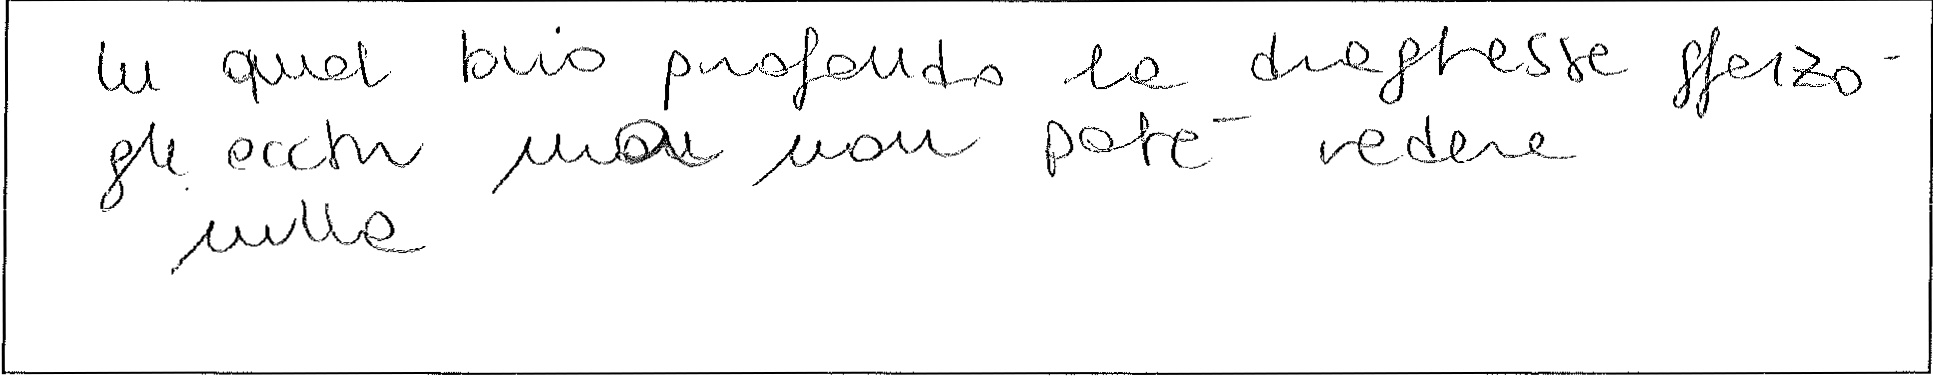 In quel buio profondo la draghessa sforzò
gli occhi ma non poté vedere
nulla